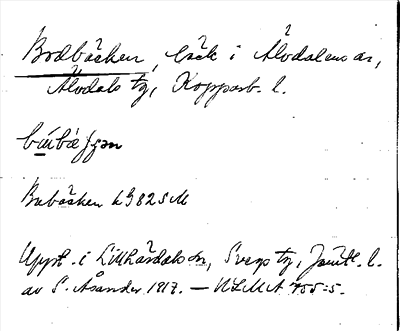 Bodbäcken, bäck i Älvdalens sn,
Älvdals tg, Kopparb. l.
Bubäcken LG 82 SM
Uppt. i Lillhärdals sn, Svegs tg, Jämtl. l.
av S. Åsander 1917. — ULMA 755:5.